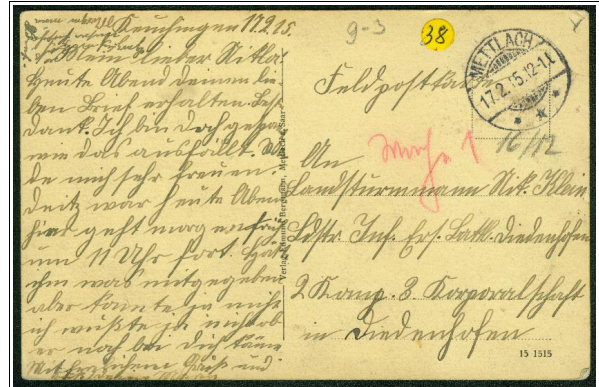 Keuchingen 17.2.15.
Mein lieber Nikla
Heute Abend deinen lie-
ben Brief erhalten. Besten
Dank. Ich bin doch gespannt
wie das ausfällt. Wür-
de mich sehr freuen.
war heute Abend
hier geht morgen früh
um 11 Uhr fort. Hätte
ihm was mitgegeben
aber konnte ja nicht
ich wußte ja nicht ob
er noch bei dich käme
Mit herzlichem Gruß und
9-3
38
METTLACH
17.2.15.12-1N
Feldpostkarte
16/12
1
An
Landsturmmann Nik. Klein
Ldstr. Inf. Ers. Batl. Diedenhofen
2 Komp. 3. Korporalschaft
in Diedenhofen
15 1515